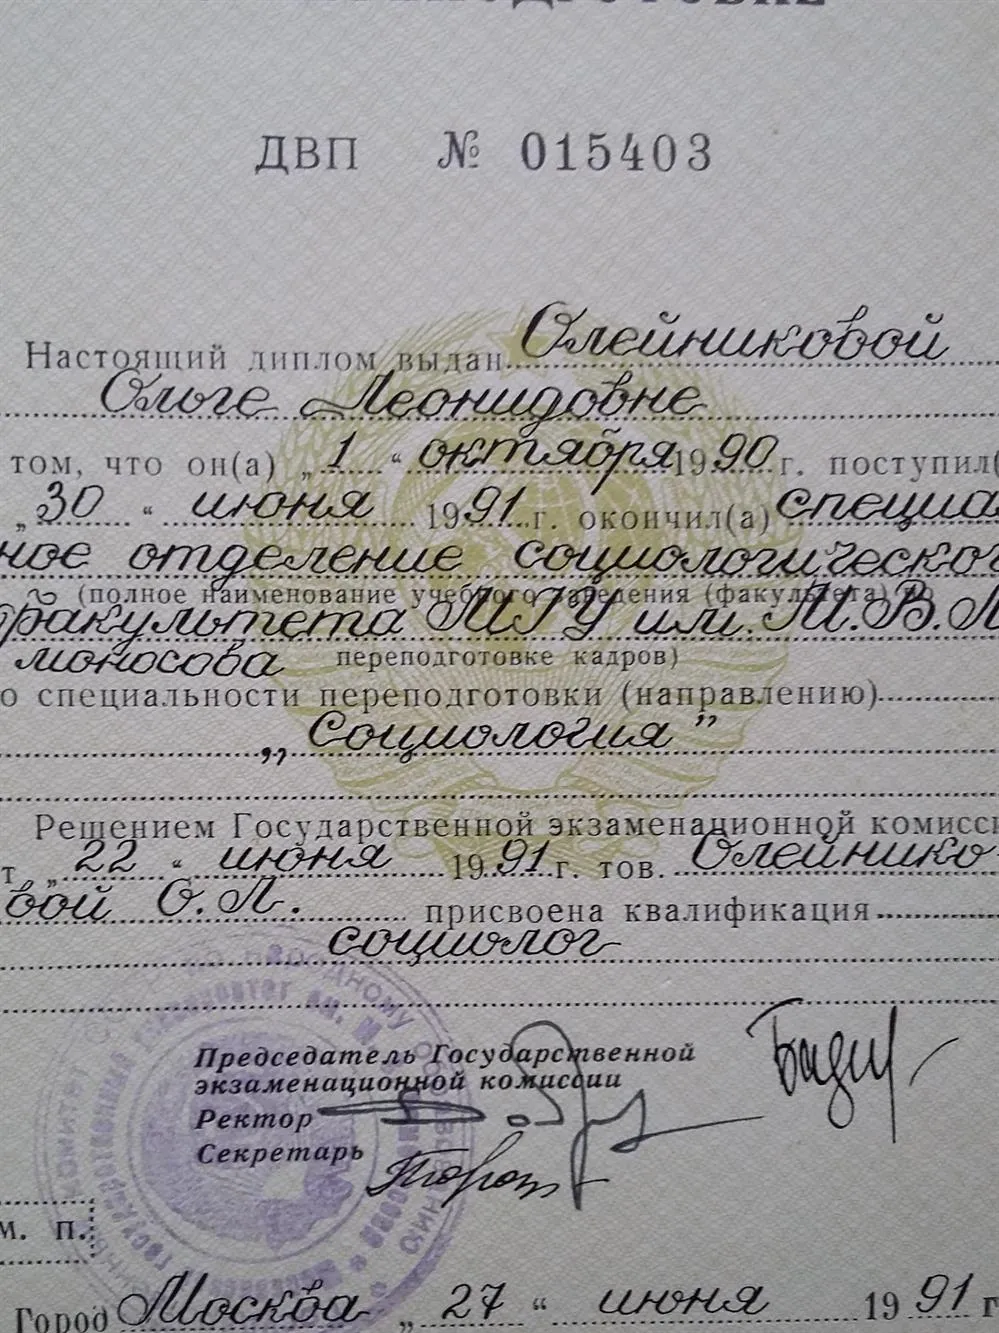 ДВП № 015403
Настоящий диплом выдан Олейниковой
Ольге Леонидовне
том, что он(а) „1“ октября 1990 г. поступил(
„30“ июня 1991 г. окончил(а) специа
ное отделение социологическог
(полное наименование учебного заведения (факультета) по
факультета МГУ им. М.В.Л
моносова переподготовке кадров)
о специальности переподготовки (направлению)
„Социология”
Решением Государственной экзаменационной комисси
т „22“ июня 1991 г. тов. Олейнико
вой О. Л. присвоена квалификация
социолог
Председатель Государственной
экзаменационной комиссии
Ректор
Секретарь
м. п.
Город Москва „27“ июня 1991 г